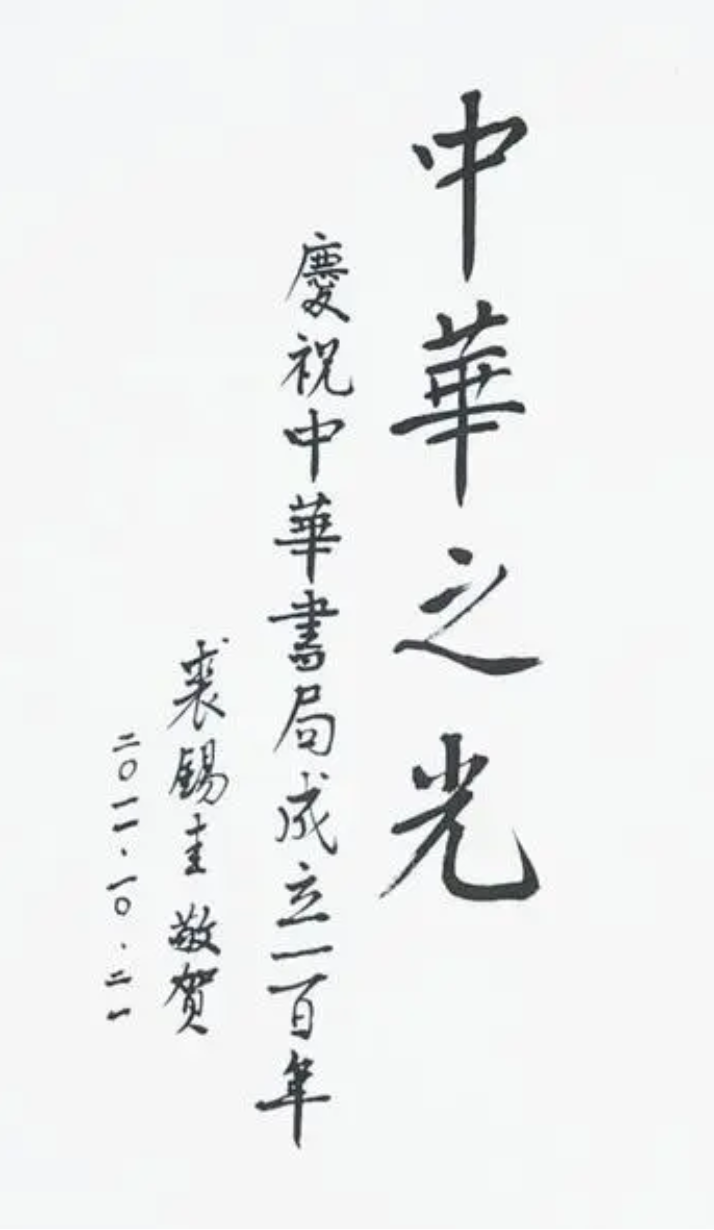 中華之光
慶祝中華書局成立一百年
裘錫圭 敬贺
二〇一一·一〇·二一